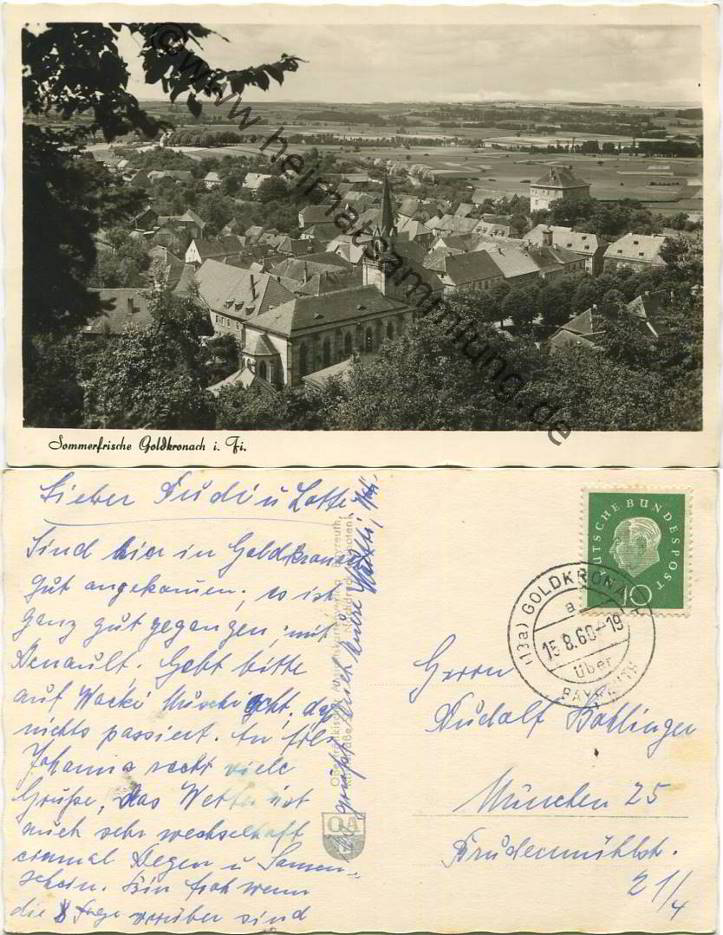 © www.heimatsammlung.de
Sommerfrische Goldkronach i. Fi.
Lieber Rudi u Lotte
Sind hier in Goldkronach
gut angekommen, es ist
ganz gut gegangen mit
Renault. Gebt bitte
auf Wacki Muschi acht, daß
nichts passiert. An Frl.
Johanna recht viele
Grüße, das Wetter ist
auch sehr wechselhaft
einmal Regen u Sonnen-
schein. Bin froh wenn
die 8 Tage vorüber sind
Es grüßt Euch
DEUTSCHE BUNDESPOST
10
(13a) GOLDKRONACH
a
15.8.60-19
über
BAYREUTH
Herrn
Rudolf Bollinger
München 25
Brudermühlstr.
21/4